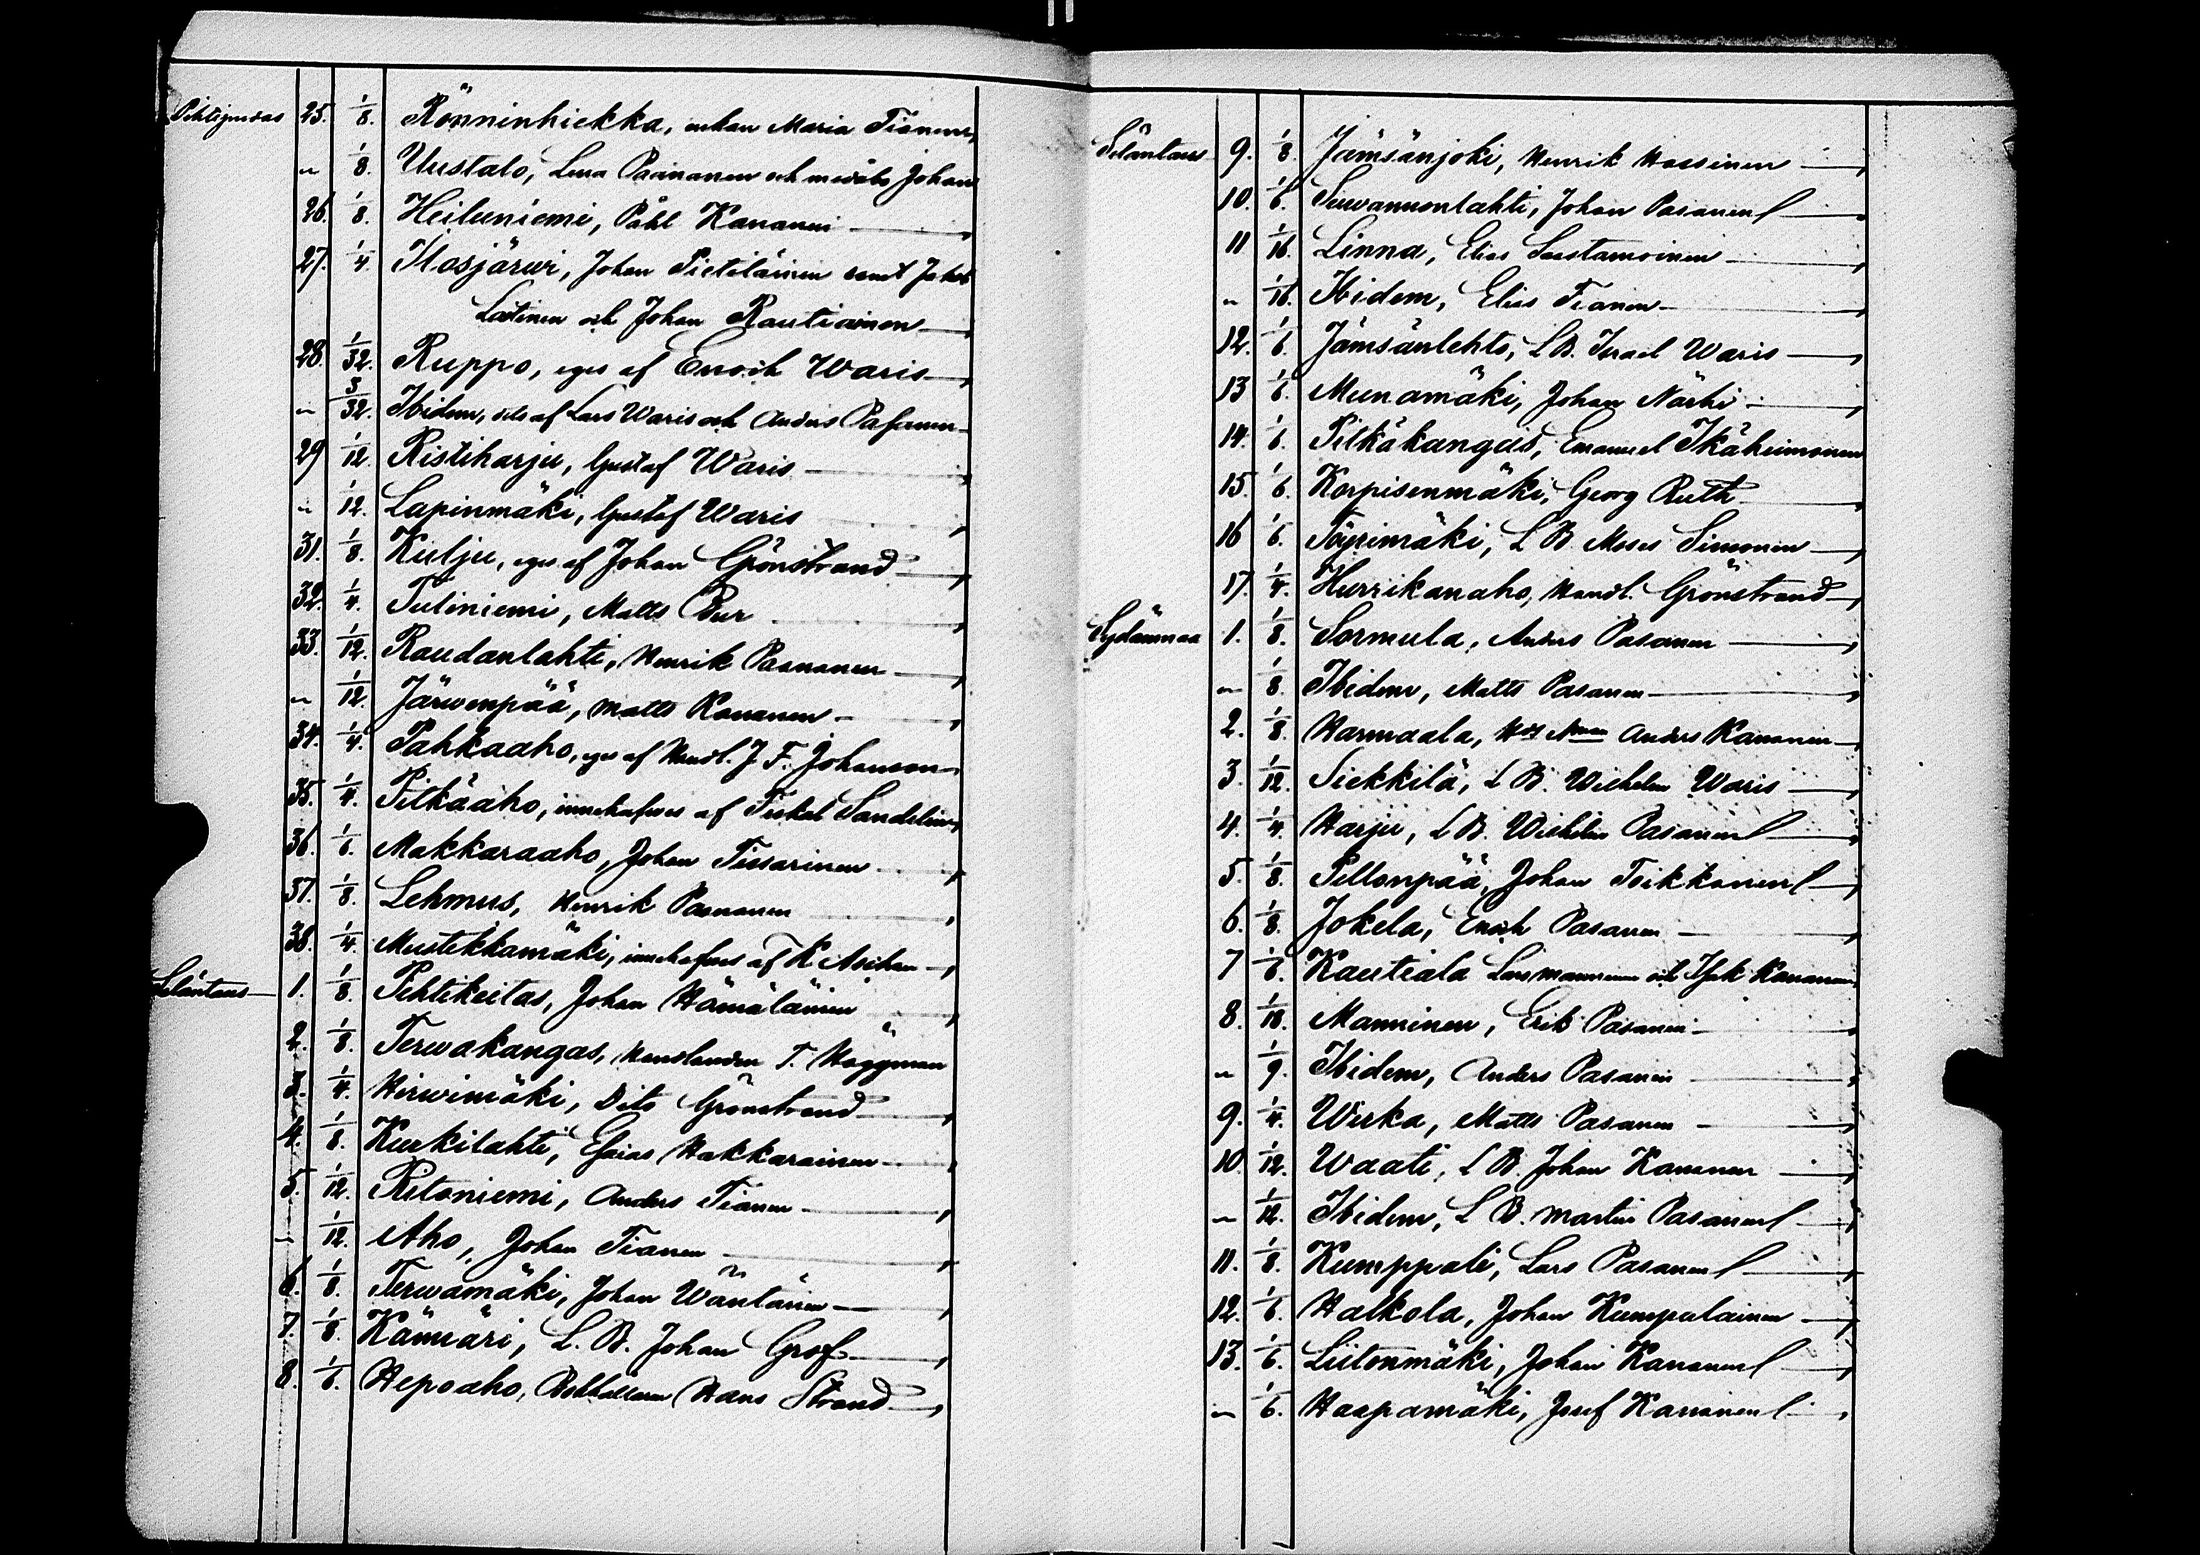 Pihtipudas 25. 1/8. Rönninhiekka, enkan Maria Tianen,
" 1/8. Uustalo, Lena Paananen och måg Johan
26. 1/8. Heiluniemi, Påhl Kananen
27. 1/4. Ilosjärwi, Johan Pietiläinen samt Jakob
Lätinen och Johan Rautiainen
28. 1/32. Ruppo, eges af Enoch Waris
" 3/32. Ibidem, dito af Lars Waris och Anders Pasanen
29 1/12. Ristiharju, Gustaf Waris
" 1/12. Lapinmäki, Gustaf Waris
31. 1/8. Kulju, eges af Johan Grönstrand
32. 1/4. Tuliniemi, Matts Bur
33. 1/12. Raudanlahti, Henrik Paananen
" 1/12. Järwenpää, Matts Kananen
34. 1/4. Pahkaaho, eges af Handl. J. F. Johanson
35. 1/4. Pitkäaho, innehafves af Fiskal Sandelin,
36. 1/6. Makkaraaho, Johan Tissarinen
37. 1/8. Lehmus, Henrik Paananen
38. 1/4. Mustikkamäki, innehafves af K
Eläntaus 1. 1/8. Pihtikeitas, Johan Hämäläinen
2. 1/8. Terwakangas, Handlanden T. Häggman
3. 1/4. Hirwimäki, Dito Grönstrand
4. 1/8. Kurkilahti, Esaias Hakkarainen
5. 1/12. Ritoniemi, Anders Tianen
" 1/12. Aho, Johan Tianen
6. 1/8. Terwamäki, Johan Wäntänen
7. 1/8. Kämäri, L. B. Johan Grof
8. 1/6. Hepoaho, Bokhållaren Hans Strand
Eläntaus 9. 1/8. Jämsänjoki, Henrik Hassinen
10. 1/6. Johan Pasanen
11 1/16. Linna, Elias Saastamoinen
" 1/16. Ibidem, Elias Tianen
12. 1/6. Jämsänlehto, L B. Israel Waris
13 1/6. Munamäki, Johan Närhi
14. 1/6. Pitkäkangas, Emanuel Ikäheimonen
15. 1/6. Korpisenmäki, Georg Ruth
16 1/6. Töyrimäki, L B. Moses Simonen
17. 1/4. Hurrikanaho, Handl. Grönstrand
Sydänmaa 1. 1/8. Sormula, Anders Pasanen
" 1/8. Ibidem, Matts Pasanen
2. 1/8. Harmaala, Anders Kananen
3. 1/12. Siekkilä, L B. Wilhelm Waris
4. 1/4. Harju, L B. Wilhelm Pasanen
5. 1/8. Pellonpää, Johan Toikkanen
6. 1/8. Jokela, Enoch Pasanen
7 1/6. Kautiala Länsmannen och Isak Kananen
8. 1/18. Manninen, Erik Pasanen
" 1/9. Ibidem, Anders Pasanen
9. 1/4. Wirka, Matts Pasanen
10. 1/12. Waati, L B. Johan Kananen
" 1/12. Ibidem, L B. Martin Pasanen
11. 1/8. Kumppali, Lars Pasanen
12. 1/6. Halkola, Johan Kumpulainen
13. 1/6. Liitonmäki, Johan Kananen
" 1/6. Haapamäki, Josef Kananen